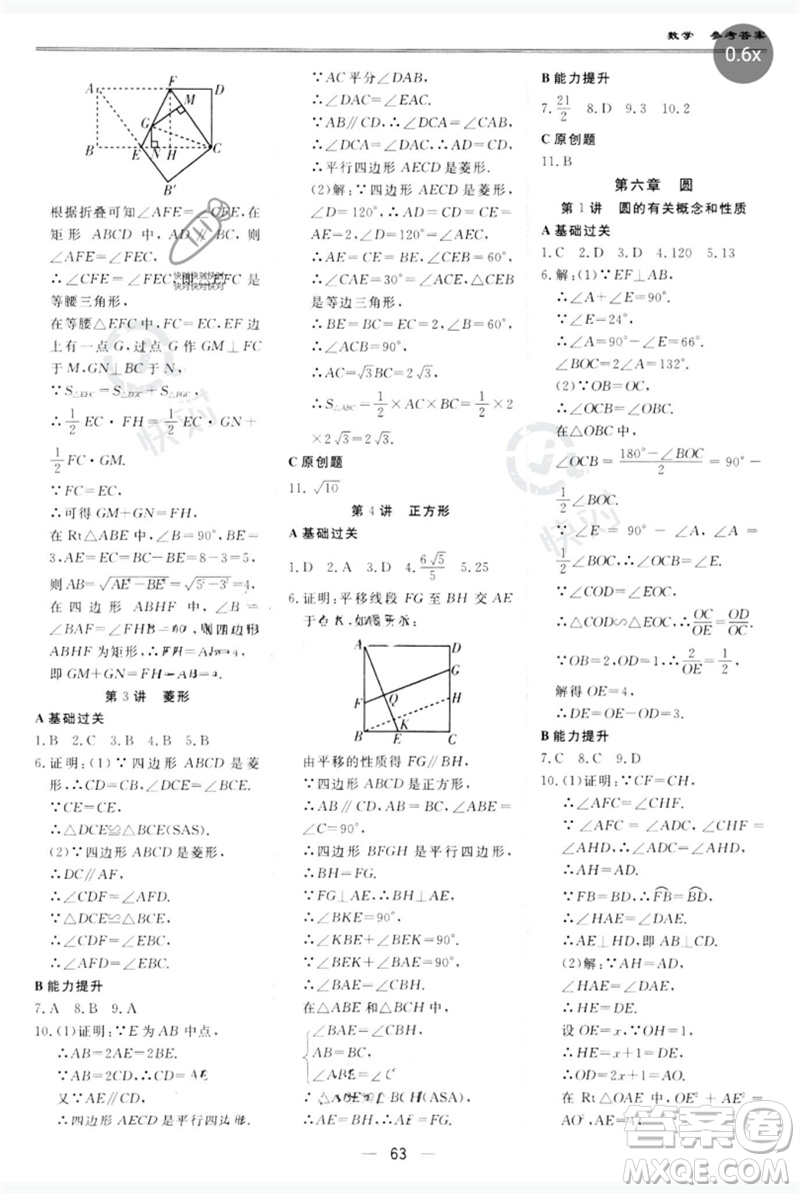 数学 参考答案
0.6x
A F D
M
G
B E N H C
B′
根据折叠可知∠AFE=∠GFE,在
矩形 ABCD 中,AD∥BC,则
∠AFE=∠FEC,
∴∠CFE=∠FEC,即△EFC是
等腰三角形,
在等腰△EFC中,FC=EC,EF边
上有一点G,过点G作GM⊥FC
于M,GN⊥BC于N,
∵S△EFC=S△EGC+S△FGC
∴1/2 EC·FH=1/2 EC·GN+
1/2 FC·GM.
∵FC=EC,
∴可得GM+GN=FH,
在Rt△ABE中,∠B=90°,BE=
3,AE=EC=BC-BE=8-3=5,
则AB=√(AE²-BE²)=√(5²-3²)=4
在四边形ABHF中,∠B=
∠BAF=∠FHB=90°,则四边形
ABHF为矩形,∴FH=AB=4,
即GM+GN=FH=4.
第3讲 菱形
A 基础过关
1.B 2.C 3.A 4.B 5.C
6.证明:(1)∵四边形ABCD是菱
形,∴CD=BC,∠ECD=∠ECB,
∵CE=CE,
∴△DCE≌△BCE(SAS).
(2)∵四边形ABCD是菱形,
∴DC∥AF,
∴∠CDF=∠AFD.
∵△DCE≌△BCE,
∴∠CDF=∠EBC,
∴∠AFD=∠EBC.
B 能力提升
7.A 8.B 9.A
10.(1)证明:∵E为AB中点,
∴AB=2AE=2BE.
∵AB=2CD,∴CD=AE.
又∵AE∥CD,
∴四边形AECD是平行四边形.
∵AC平分∠DAB,
∴∠DAC=∠EAC.
∵AB∥CD,∴∠DCA=∠EAC,
∴∠DCA=∠DAC,∴AD=CD,
∴平行四边形AECD是菱形.
(2)解:∵四边形AECD是菱形,
∠D=120°,∴AD=CD=CE=
AE=2,∠D=120°=∠AEC,
∴AE=CE=BE,∠CEB=60°,
∴∠CAE=30°=∠ACE,△CEB
是等边三角形,
∴BE=BC=EC=2,∠B=60°,
∴∠ACB=90°,
∴AC=√3BC=2√3,
∴S△ABC=1/2×AC×BC=1/2×2
×2√3=2√3.
C 原创题
11.√10
第4讲 正方形
A 基础过关
1.D 2.A 3.D 4.6√5/5 5.25
6.证明:平移线段FG至BH交AE
于点K,如图所示:
A D
G
Q H
F
K
B E C
由平移的性质得FG∥BH,
∵四边形ABCD是正方形,
∴AB∥CD,AB=BC,∠ABE=
∠C=90°,
∴四边形BFGH是平行四边形,
∴BH=FG,
∵FG⊥AE,∴BH⊥AE,
∴∠BKE=90°,
∴∠KBE+∠BEK=90°,
∵∠BEK+∠BAE=90°,
∴∠BAE=∠CBH,
在△ABE和△BCH中,
∠BAE=∠CBH,
AB=BC,
∠ABE=∠C,
∴△ABE≌△BCH(ASA),
∴AE=BH,∴AE=FG.
B 能力提升
7.21/2 8.D 9.3 10.2
C 原创题
11.B
第六章 圆
第1讲 圆的有关概念和性质
A 基础过关
1.C 2.D 3.D 4.120 5.13
6.解:(1)∵EF⊥AB,
∴∠A+∠E=90°.
∵∠E=24°,
∴∠A=90°-∠E=66°.
∠BOC=2∠A=132°.
(2)∵OB=OC,
∴∠OCB=∠OBC.
在△OBC中,
∠OCB=(180°-∠BOC)/2=90°-
1/2∠BOC.
∵∠E=90°-∠A=90°-
1/2∠BOC,∴∠E=∠OCB.
∵∠COD=∠EOC,
∴△COD∽△EOC,∴OC/OE=OD/OC.
∵OB=2,OD=1,∴2/OE=1/2,
解得OE=4,
∴DE=OE-OD=3.
B 能力提升
7.C 8.C 9.D
10.(1)证明:∵CF=CH,
∴∠AFC=∠CHF.
∵∠AFC=∠ADC,∠CHF=
∠AHD,∴∠ADC=∠AHD,
∴AH=AD.
∵FB=BD,∴FB=BD,
∴∠HAE=∠DAE.
∴AE⊥HD,即AB⊥CD.
(2)解:∵AH=AD,
∠HAE=∠DAE,
∴HE=DE.
设OE=x,
∴HE=x+1=DE,
∴OD=2x+1.
在Rt△OAE中,OE²+AE²=
AO²,AE=1,
63
快对
快对快对快对
快对快对快对
答案圈